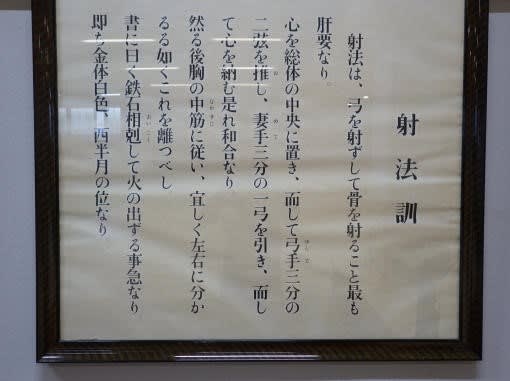 射法訓
射法は、弓を射ずして骨を射ること最も
肝要なり。
心を総体の中央に置き、而して弓手三分の
二弦を推し、妻手三分の一弓を引き、而し
て心を納む是れ和合なり
然る後胸の中筋に従い、宜しく左右に分か
るる如くこれを離つべし
書に曰く鉄石相剋して火の出ずる事急なり
即ち金体白色、西半月の位なり